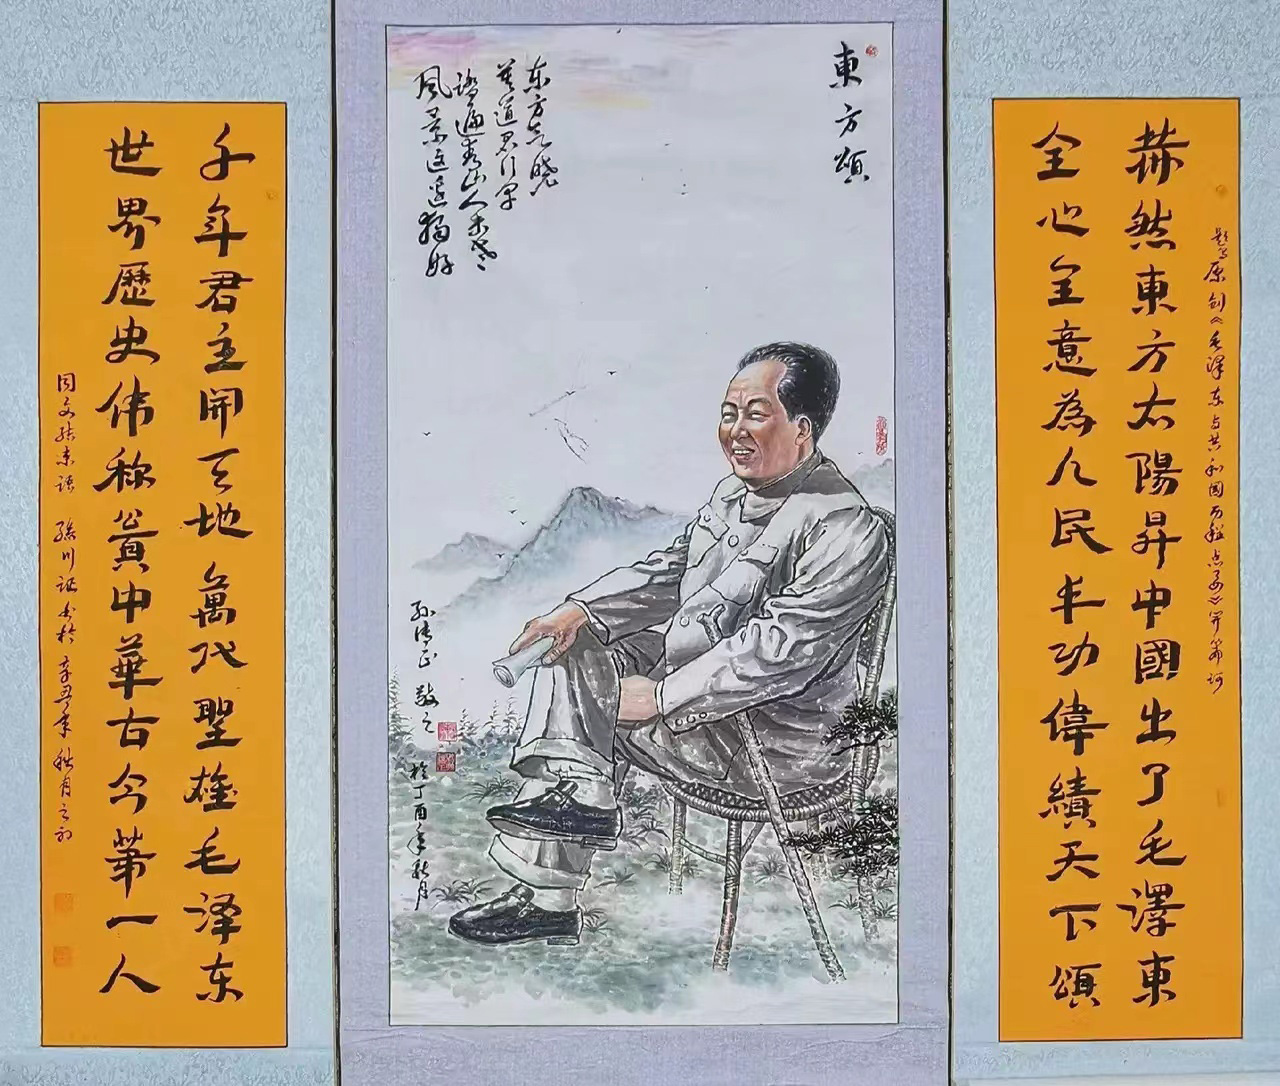 赫然東方太陽昇中國出了毛澤東
全心全意為人民丰功偉績天下頌
東方頌
东方欲晓
莫道君行早
踏遍青山人未老
风景这边独好
孙传正 敬之
於丁酉年秋月
千年君主開天地萬代聖雄毛泽东
世界歷史伟称冀中華古今第一人
同文结束语
辛丑年秋月之初